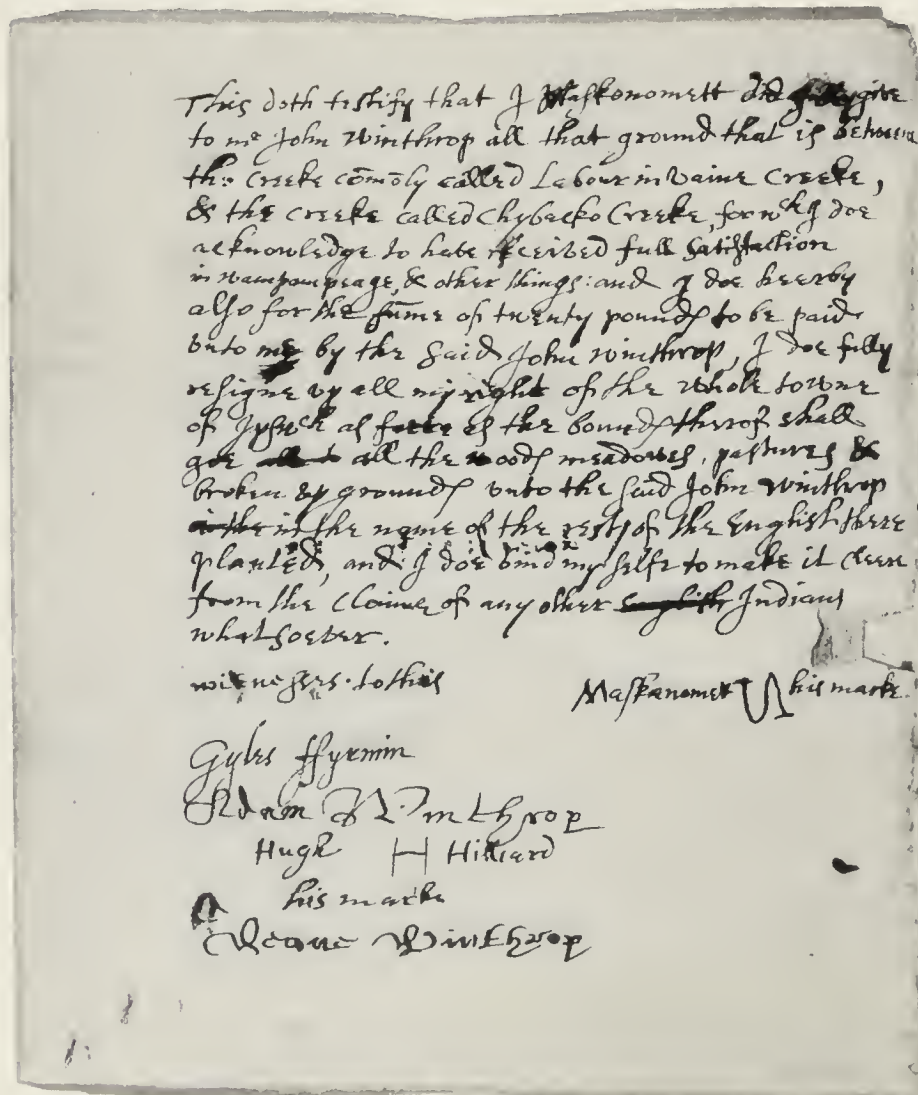 This doth testify that I Maskonomett did give
to me John Winthrop all that ground that is betweene
the creeke comōly called Labour in vaine creeke,
& the creeke called Chybacko Creeke, for wch I doe
acknowledge to have received full satisfaction
in wampampeage, & other things: and I doe heerby
also for the sum̄e of twenty pounds to be paid
unto me by the said John Winthrop, I doe fully
resigne up all my right of the whole towne
of Ipswch as farre as the bounds therof shall
goe all the woods meadowes, pastures &
broken up grounds unto the said John Winthrop
in the name of the rest of the English there
planted, and I doe bind my selfe to make it cleere
from the claime of any other Indians
whatsoever.
witnesses to this
Maskanomet his marke.
Gyles ffyrmin
Adam Winthrop
Hugh H Hilliard
his marke
Deane Winthrop